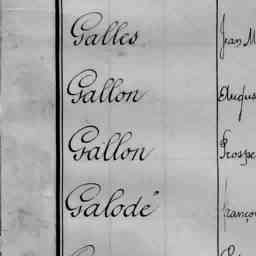 Galles Jean M
Gallon Augus
Gallon Prospe
Galodé Franço